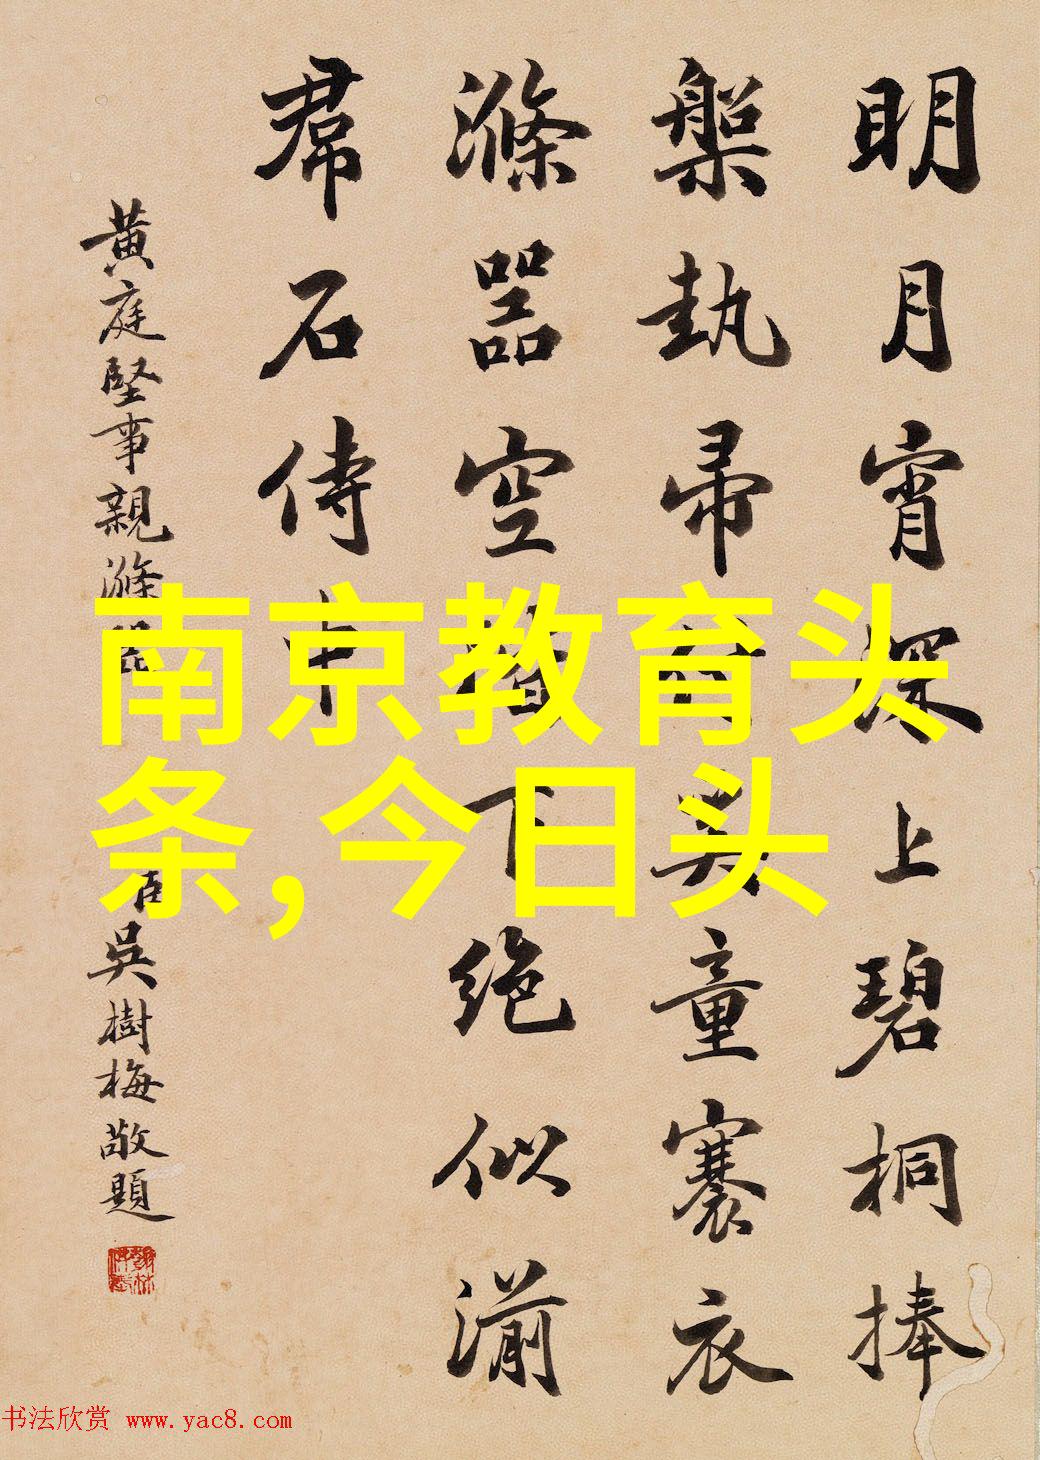 明月宵深上碧桐捧
槃執帚奚童褰衣
滌器空下絶似湔
帬石侍中
黄庭堅事親滌器
臣吳樹梅敬題
南京教育头
条,今日头
书法欣赏 www.yac8.com